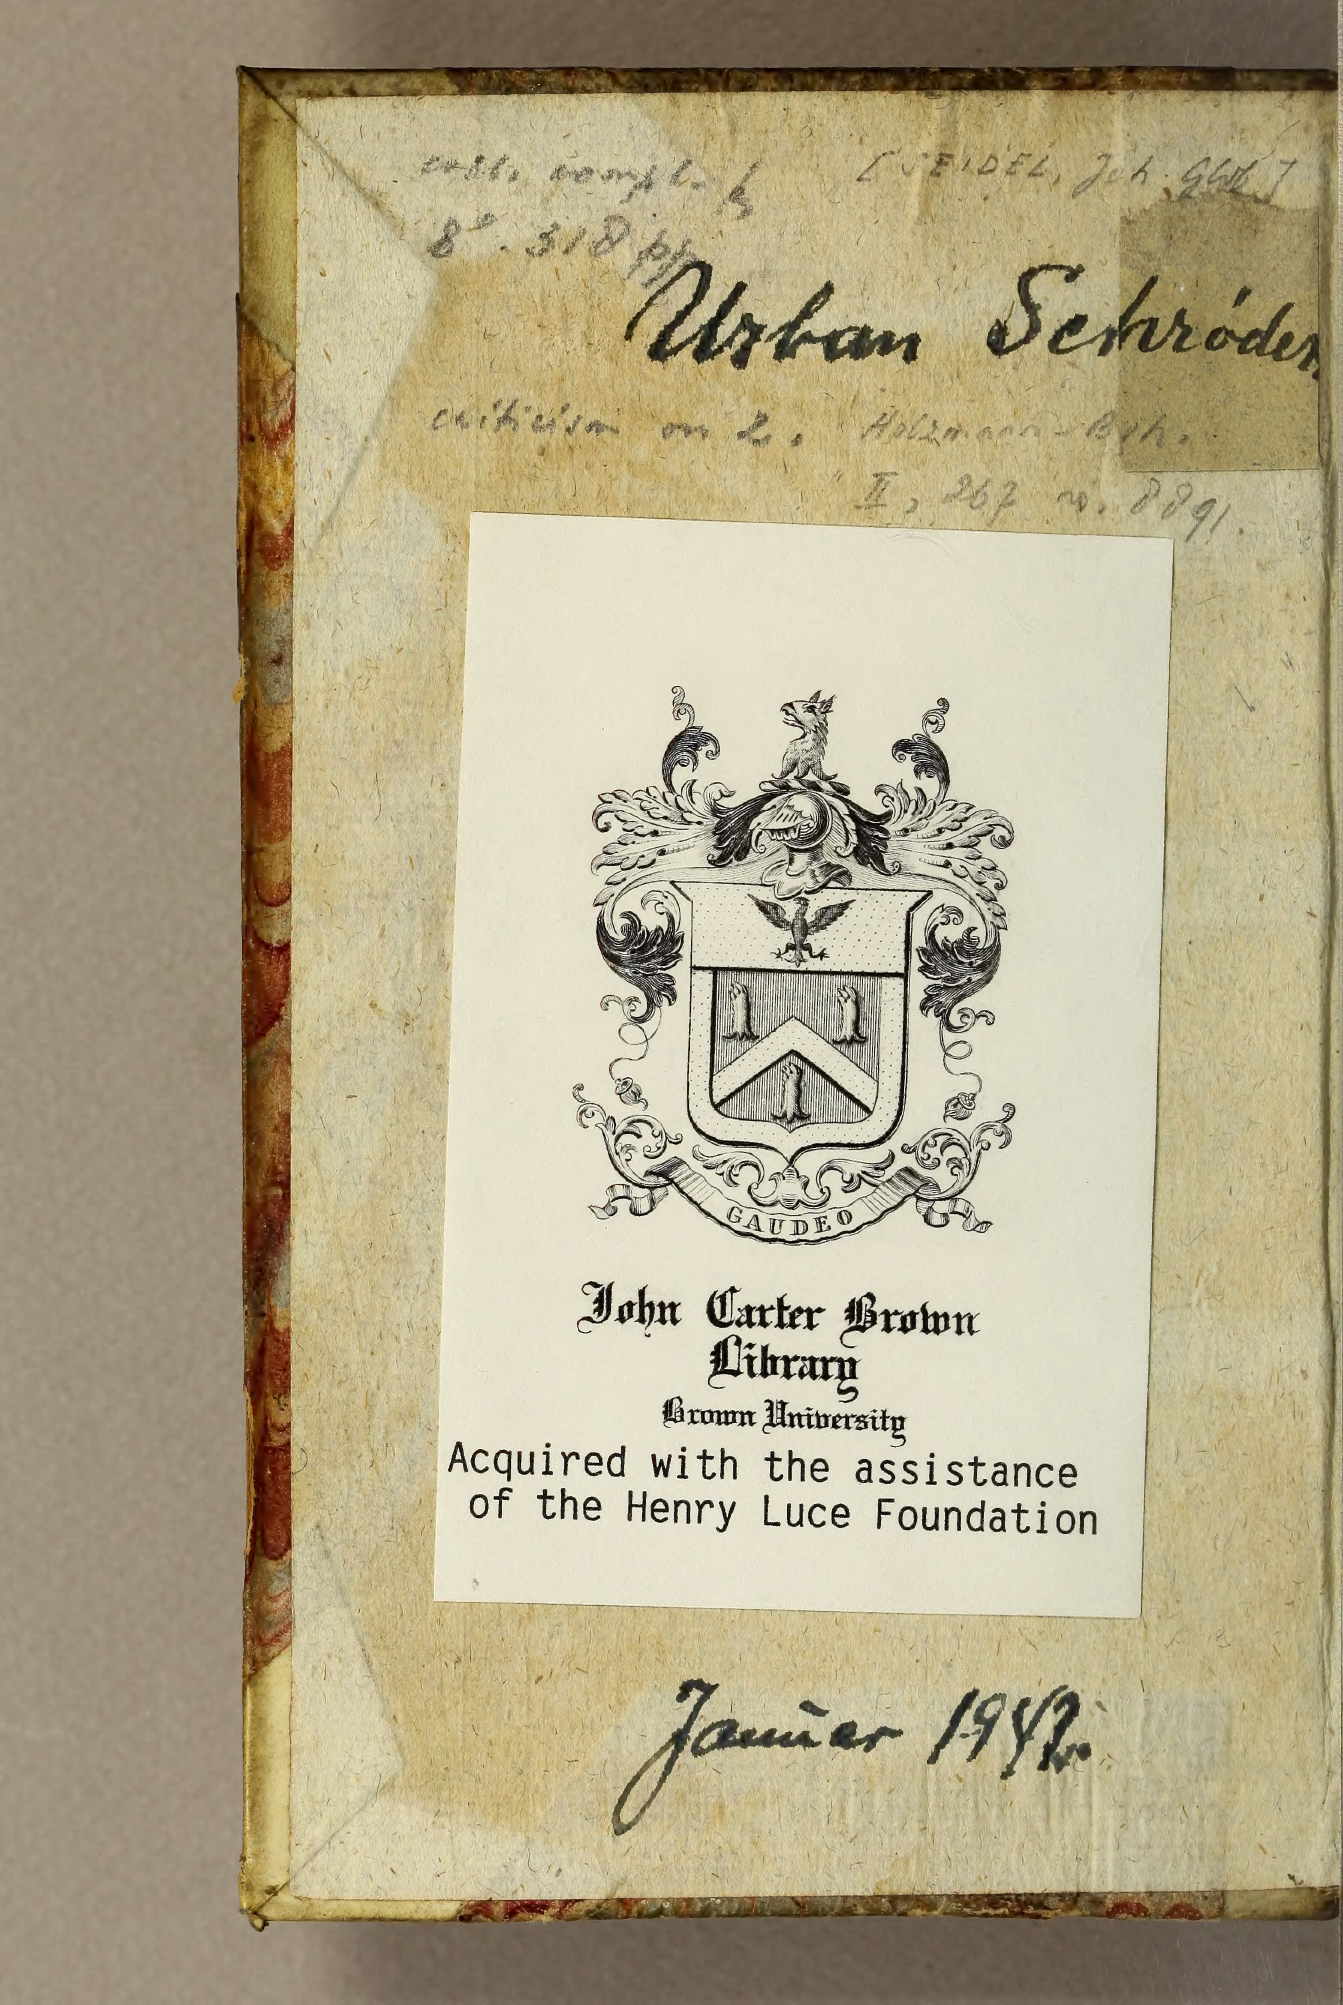 coll. compl. &
[SEIDEL, Joh. Gttl.]
8°. 318 pp
Urban Schröder
criticism on 2.
Holzmann-Boh.
II, 267 n. 8891.
GAUDEO
John Carter Brown
Library
Brown University
Acquired with the assistance
of the Henry Luce Foundation
Januar 1942.